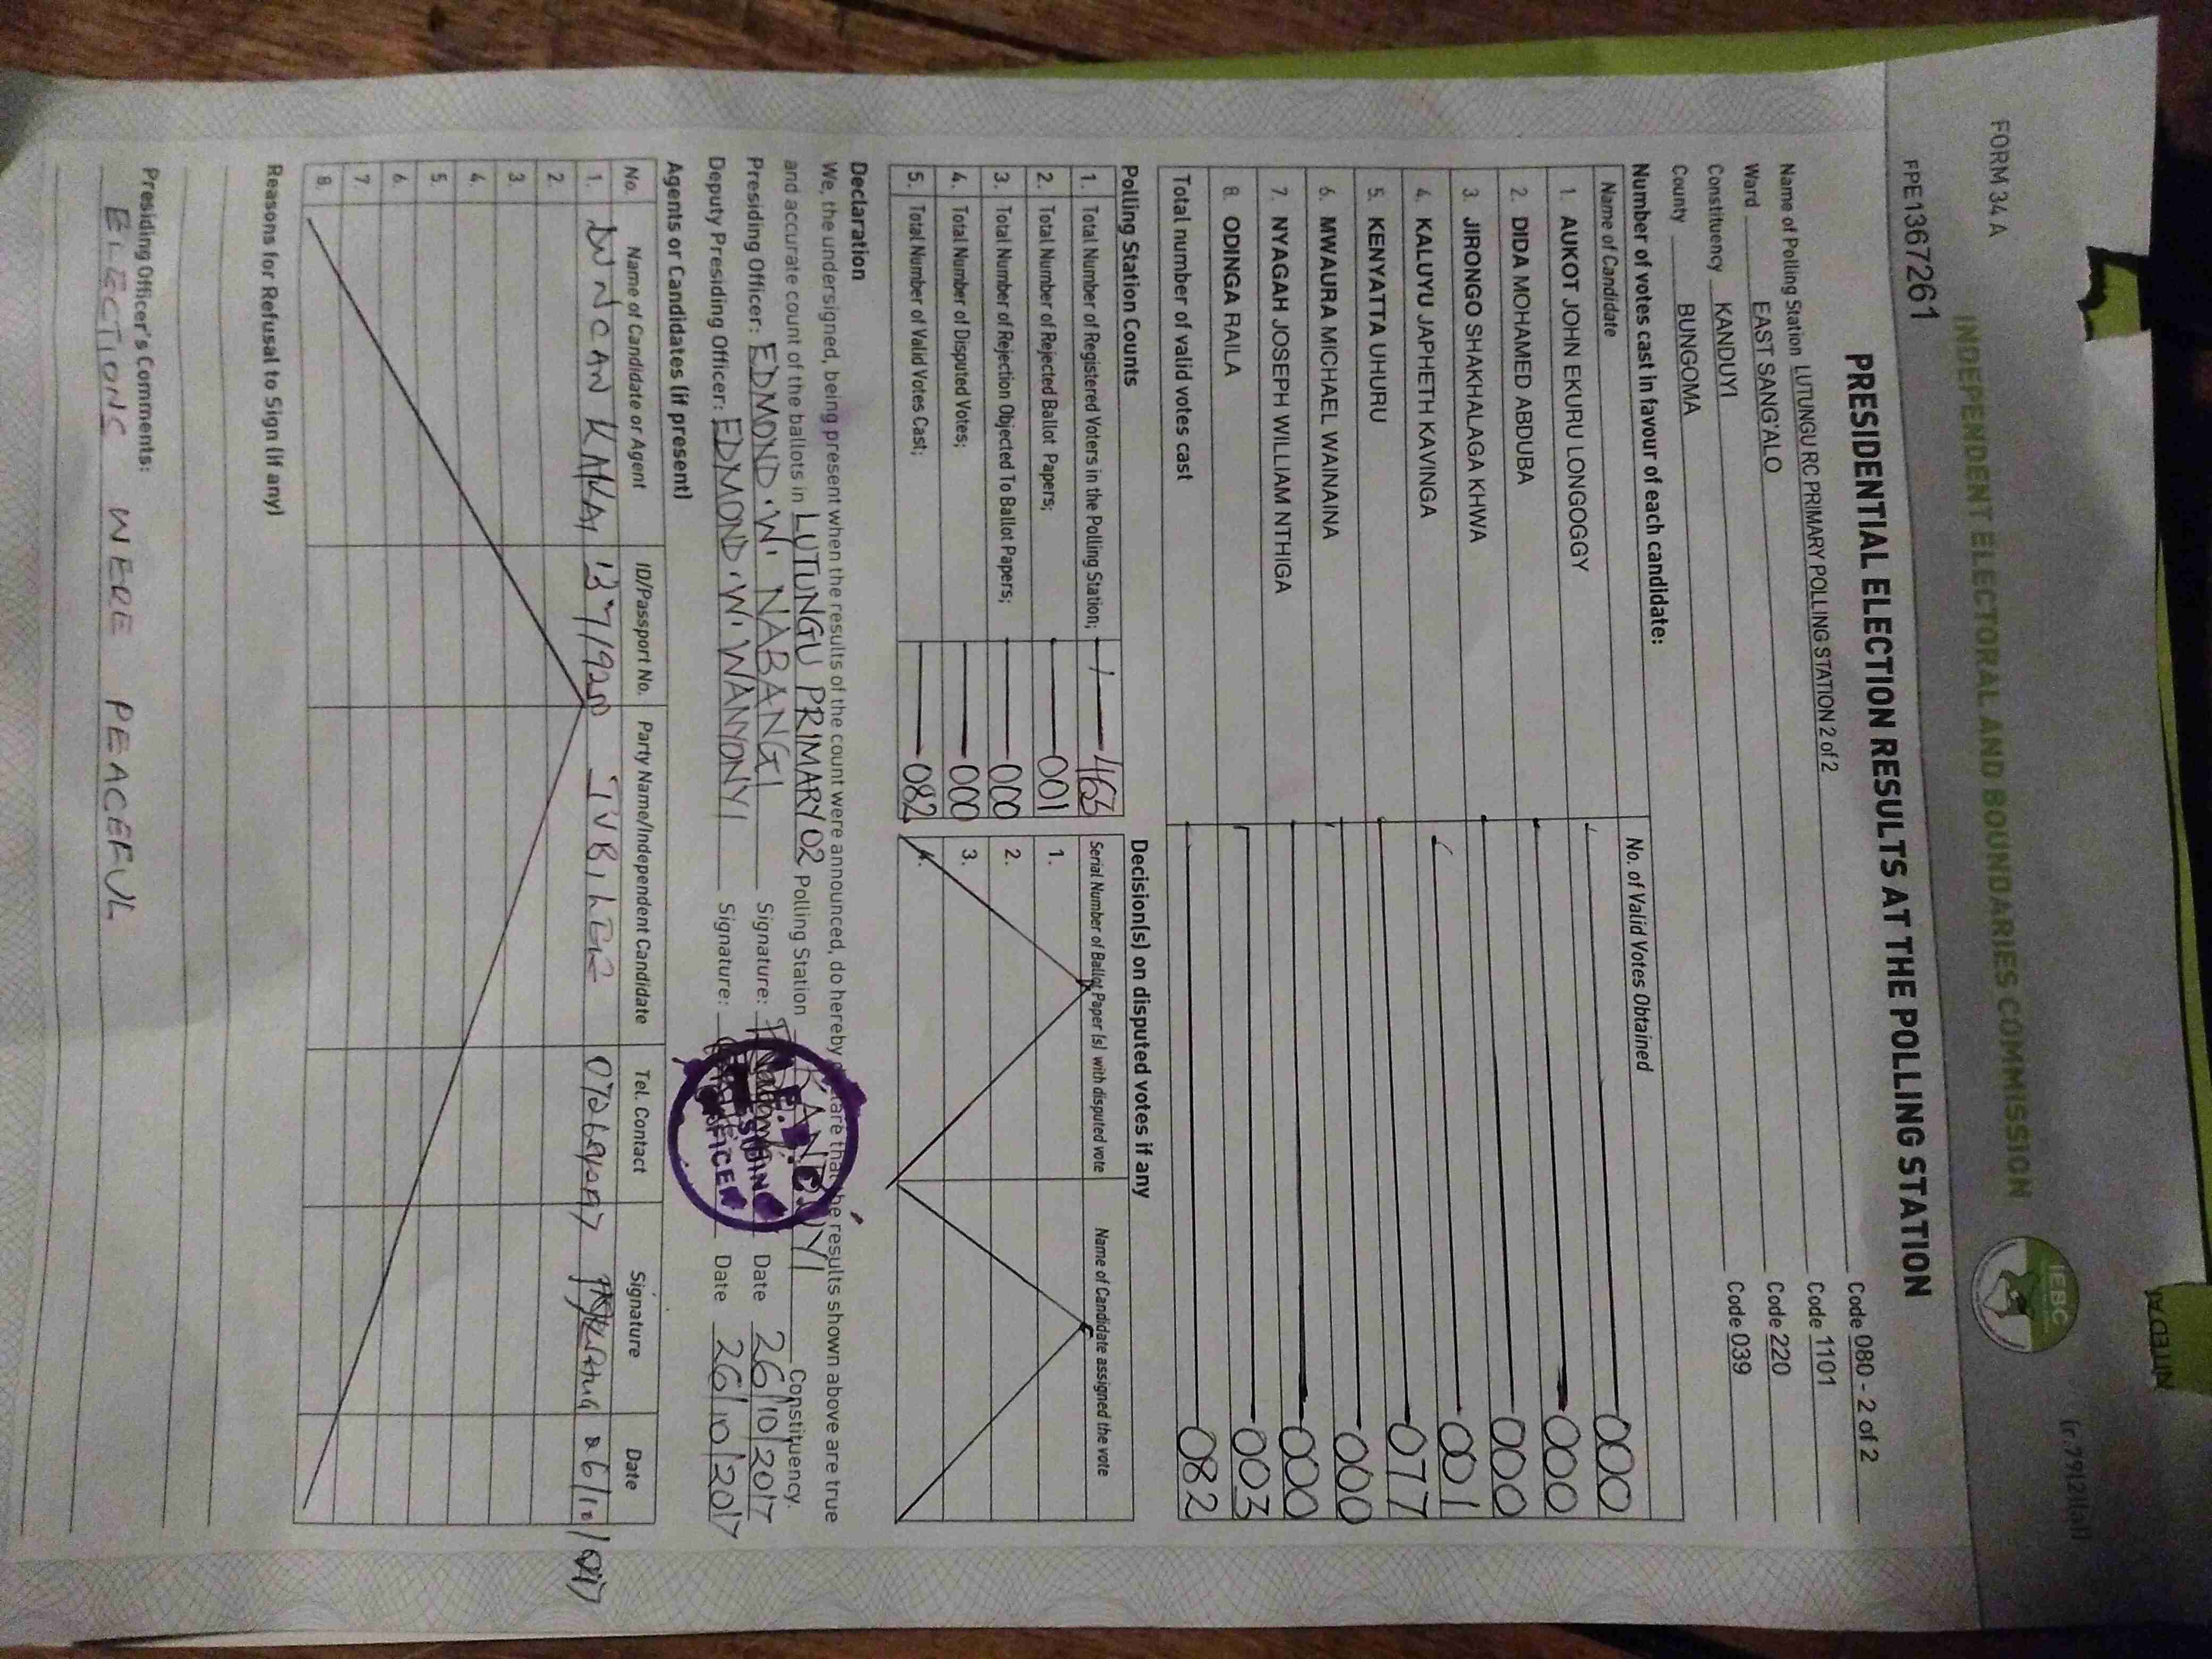 FORM 34 A
INDEPENDENT ELECTORAL AND BOUNDARIES COMMISSION
IEBC
FPE1367261
PRESIDENTIAL ELECTION RESULTS AT THE POLLING STATION
Name of Polling Station LUTUNGU RC PRIMARY POLLING STATION 2 of 2 Code 080 - 2 of 2
Ward EAST SANG'ALO Code 1101
Constituency KANDUYI Code 220
County BUNGOMA Code 039
Number of votes cast in favour of each candidate:
Name of Candidate No. of Valid Votes Obtained
1. AUKOT JOHN EKURU LONGOGGY 000
2. DIDA MOHAMED ABDUBA 000
3. JIRONGO SHAKHALAGA KHWA 000
4. KALUYU JAPHETH KAVINGA 001
5. KENYATTA UHURU 077
6. MWAURA MICHAEL WAINAINA 000
7. NYAGAH JOSEPH WILLIAM NTHIGA 000
8. ODINGA RAILA 003
Total number of valid votes cast 082
Polling Station Counts Decision(s) on disputed votes if any
1. Total Number of Registered Voters in the Polling Station; Serial Number of Ballot Paper (s) with disputed vote Name of Candidate assigned the vote
2. Total Number of Rejected Ballot Papers; 001 1.
3. Total Number of Rejection Objected To Ballot Papers; 000 2.
4. Total Number of Disputed Votes; 000 3.
5. Total Number of Valid Votes Cast; 082 4.
Declaration
We, the undersigned, being present when the results of the count were announced, do hereby declare that the results shown above are true
and accurate count of the ballots in LUTUNGU PRIMARY 02 Polling Station KANDUYI Constituency.
Presiding Officer: EDMOND . W. NABANGI Signature: Date 26/10/2017
Deputy Presiding Officer: EDMOND . W. WANYONYI Signature: Date 26/10/2017
OFFICER
Agents or Candidates (if present)
No. Name of Candidate or Agent ID/Passport No. Party Name/Independent Candidate Tel. Contact Signature Date
1. DUNCAN KAKAI JUBILEE
2.
3.
4.
5.
6.
7.
8.
Reasons for Refusal to Sign (if any)
Presiding Officer's Comments:
ELECTIONS WERE PEACEFUL